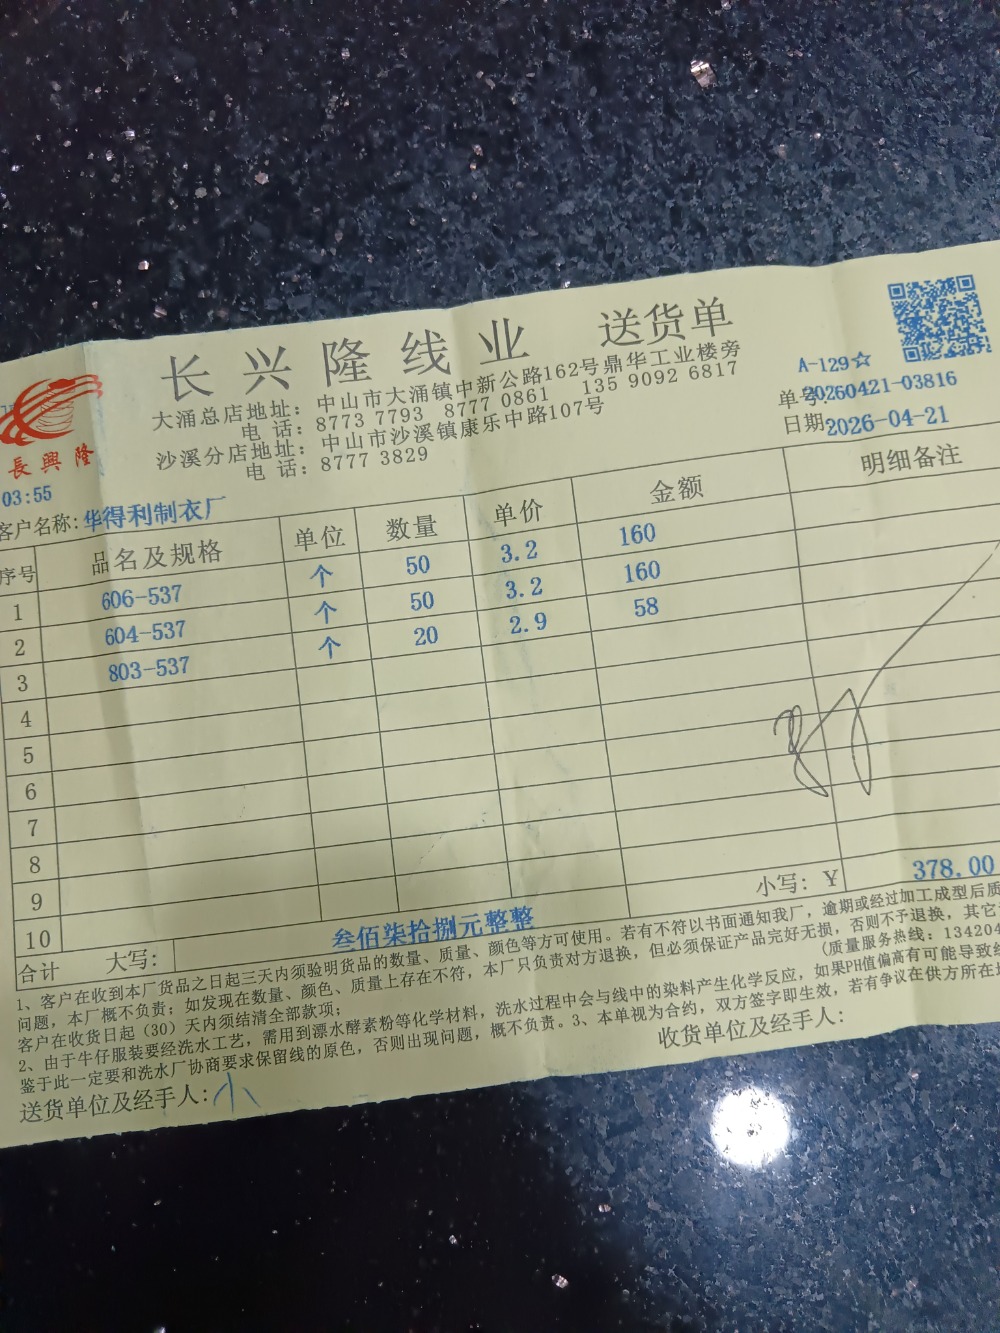 长兴隆线业 送货单
大涌总店地址：中山市大涌镇中新公路162号鼎华工业楼旁
电 话：8773 7793 8777 0861 135 9092 6817
沙溪分店地址：中山市沙溪镇康乐中路107号
电 话：8777 3829
長興隆
A-129☆
单号:20260421-03816
日期2026-04-21
03:55
客户名称:华得利制衣厂
序号 品名及规格 单位 数量 单价 金额 明细备注
1 606-537 个 50 3.2 160
2 604-537 个 50 3.2 160
3 803-537 个 20 2.9 58
4
5
6
7
8
9
10
合计 大写: 叁佰柒拾捌元整整 小写: ¥ 378.00
1、客户在收到本厂货品之日起三天内须验明货品的数量、质量、颜色等方可使用。若有不符以书面通知我厂，逾期或经过加工成型后质
问题，本厂概不负责；如发现在数量、颜色、质量上存在不符，本厂只负责对方退换，但必须保证产品完好无损，否则不予退换，其它
客户在收货日起（30）天内须结清全部款项; (质量服务热线: 134204
2、由于牛仔服装要经洗水工艺，需用到漂水酵素粉等化学材料，洗水过程中会与线中的染料产生化学反应，如果PH值偏高有可能导致
鉴于此一定要和洗水厂协商要求保留线的原色，否则出现问题，概不负责。3、本单视为合约，双方签字即生效，若有争议在供方所在
送货单位及经手人:小 收货单位及经手人: